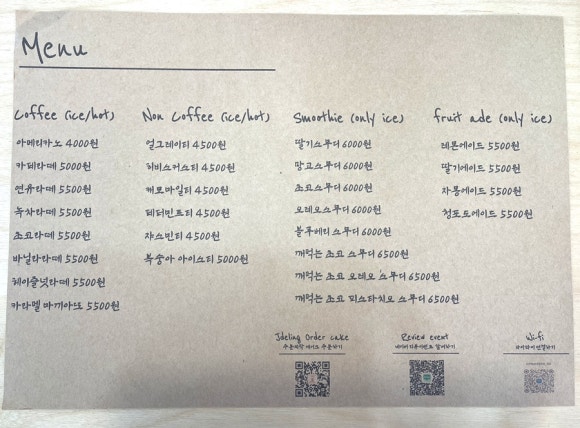 Menu
Coffee (ice/hot)
아메리카노 4000원
카페라떼 5000원
연유라떼 5500원
녹차라떼 5500원
초코라떼 5500원
바닐라라떼 5500원
헤이즐넛라떼 5500원
카라멜 마끼아또 5500원
Non Coffee (ice/hot)
얼그레이티 4500원
히비스커스티 4500원
캐모마일티 4500원
페퍼민트티 4500원
쟈스민티 4500원
복숭아 아이스티 5000원
Smoothie (only ice)
딸기스무디 6000원
망고스무디 6000원
초코스무디 6000원
오레오스무디 6000원
블루베리 스무디 6000원
깨먹는 초코 스무디 6500원
깨먹는 초코 오레오 스무디 6500원
깨먹는 초코 피스타치오 스무디 6500원
fruit ade (only ice)
레몬에이드 5500원
딸기에이드 5500원
자몽에이드 5500원
청포도에이드 5500원
Jdeling Order cake
주문제작 케이크 주문하기
Review event
네이버리뷰이벤트 참여하기
Wi-fi
와이파이 연결하기